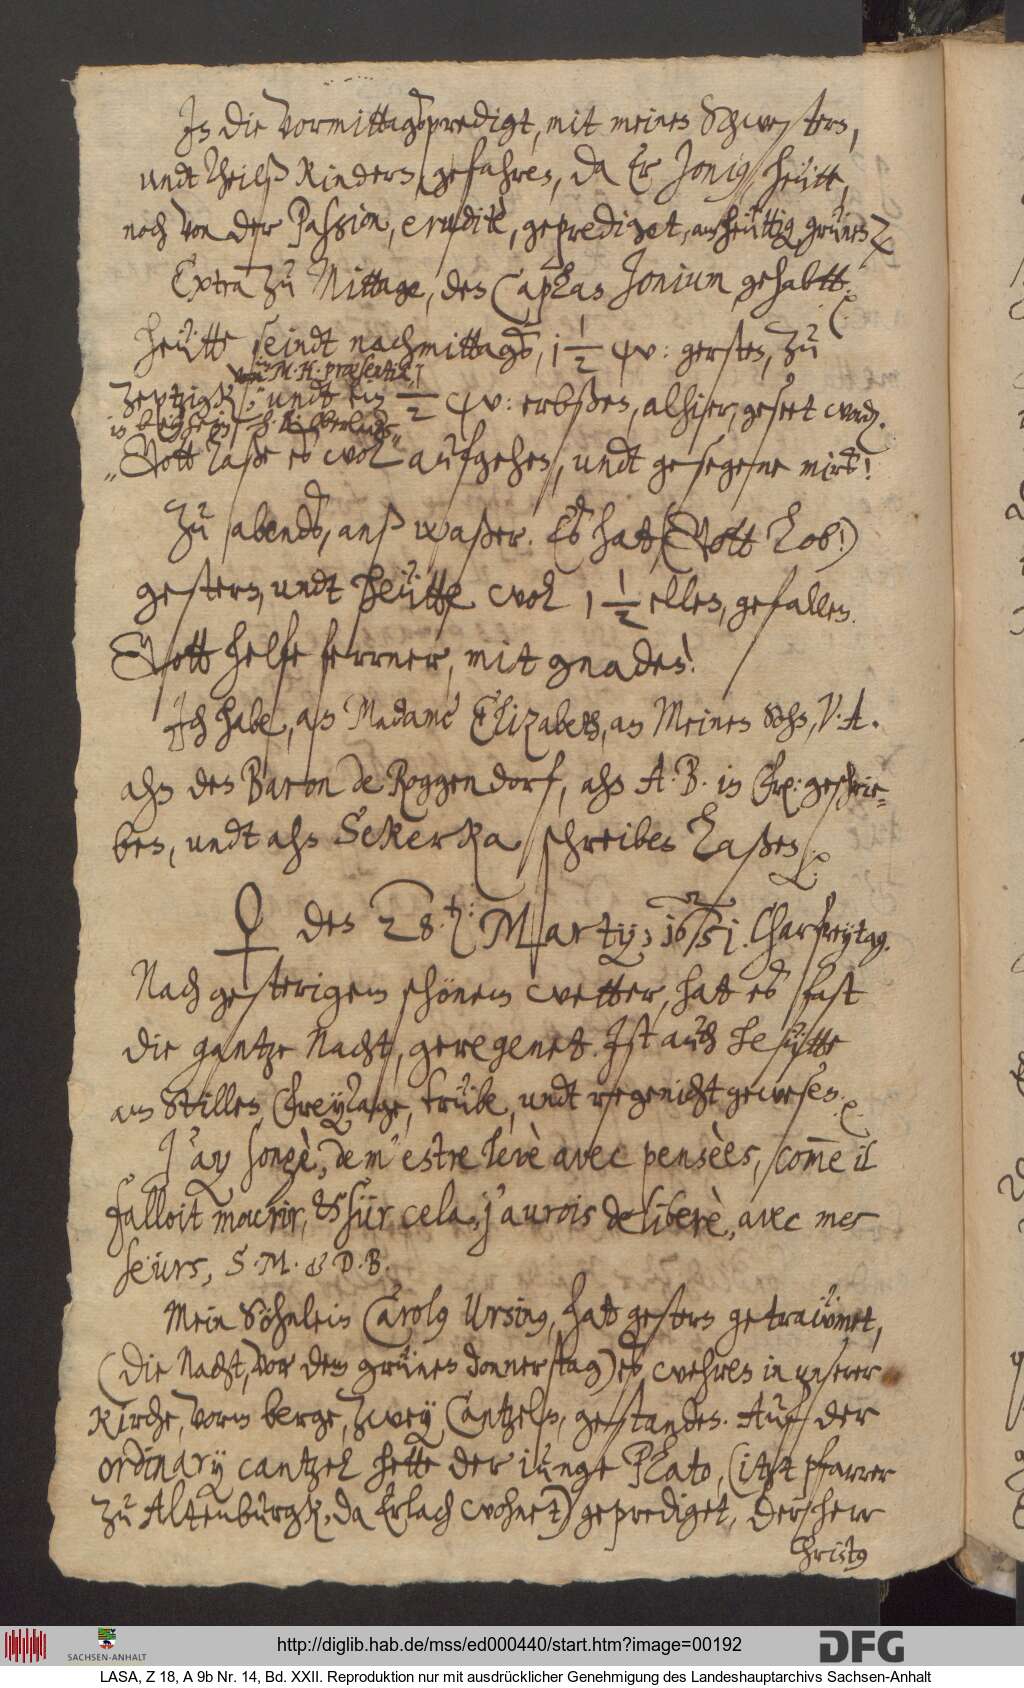 In die vormittagspredigt, mit meinen Schwestern,
undt theilß Kindern, gefahren, da Er Jonius, heütt,
noch von der Passion, erudite, geprediget, am heüttig grünen
Extra zu Mittage, den Caplan Jonium gehabtt.
Heütte seindt nachmittags, 1 1/2 {Wispel} gersten, zu
in beysein H. R. Oberlenders
von M. H. præsertim
Zeptzigk, undt ein 1/2 {Wispel} erbßen, alhier, geseet worden.
Gott laße es wol aufgehen, undt gesegene mirs!
Zu abends, extra: wieder. Es hat, (Gott lob!)
gestern, undt heütte wol 1 1/2 ellen, gefallen.
Gott helfe ferrner, mit gnaden!
Ich habe, an Madame Elizabeth, an Meinen Sohn, V. A.
ahn den Baron de Roggendorf, ahn A. B. in geschrie-
ben, undt ahn Sekerka schreiben laßen.
♀ den 28.ten: Martij; 1651. Charfreytag.
Nach gesterigem schönem wetter, hat es fast
die gantze Nacht, geregenet. Ist auch heütte
am Stillen Freytage, trübe, undt regenicht gewesen.
J'ay songè, de m'estre levè avec pensèes, comme il
falloit mourir, & sür cela, j'aurois deliberè, avec mes
seürs, S. M. & D. B.
Mein Söhnlein Carolus Ursinus, hat gestern getraümet,
(die Nacht, vor dem grünen donnerstag) es wehren in unserer
Kirche, vorm berge, zwey Cantzeln, gestanden. Auf der
ordinary cantzel hette der iunge Plato, (itzt pfarrer
zu Altenburgk, da Erlach wohnet) geprediget, der herr
Christus
http://diglib.hab.de/mss/ed000440/start.htm?image=00192
SACHSEN-ANHALT
DFG
LASA, Z 18, A 9b Nr. 14, Bd. XXII. Reproduktion nur mit ausdrücklicher Genehmigung des Landeshauptarchivs Sachsen-Anhalt